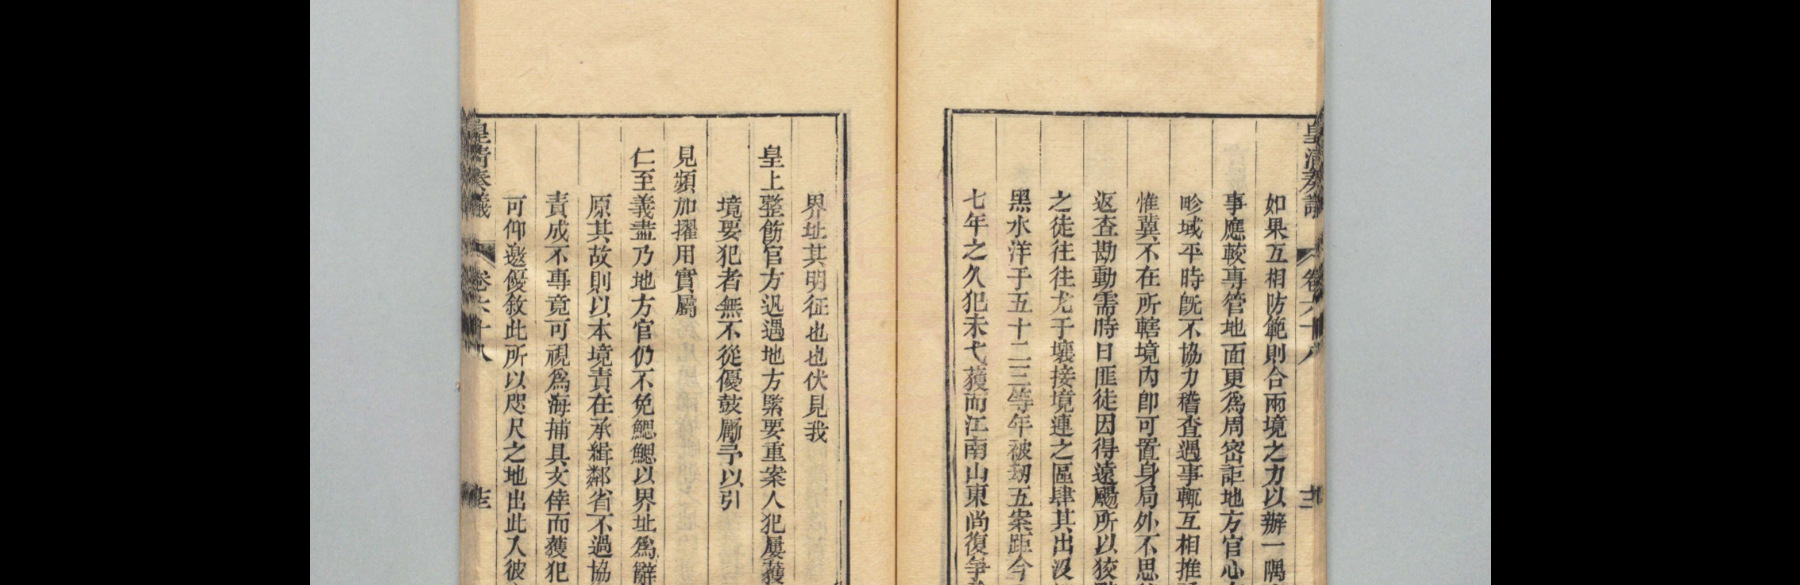 皇清奏議 卷六十八
如果互相防範則合兩境之力以辦一隅
事應較專管地面更爲周密詎地方官心
畛域平時旣不協力稽查遇事輒互相推
惟冀不在所轄境內卽可置身局外不思
返查勘動需時日匪徒因得遠颺所以狡
之徒往往尤于壤接境連之區肆其出沒
黑水洋于五十二三等年被刼五案距今
七年之久犯未弋獲而江南山東尚復爭
界址其明征也也伏見我
皇上整飭官方迅遇地方緊要重案人犯屢獲
境要犯者無不從優鼓勵予以引
見頻加擢用實屬
仁至義盡乃地方官仍不免鰓鰓以界址爲辭
原其故則以本境責在承緝鄰省不過協
責成不專竟可視爲海捕具文倖而獲犯
可仰邀優敘此所以咫尺之地出此入彼
皇清奏議 卷六十八